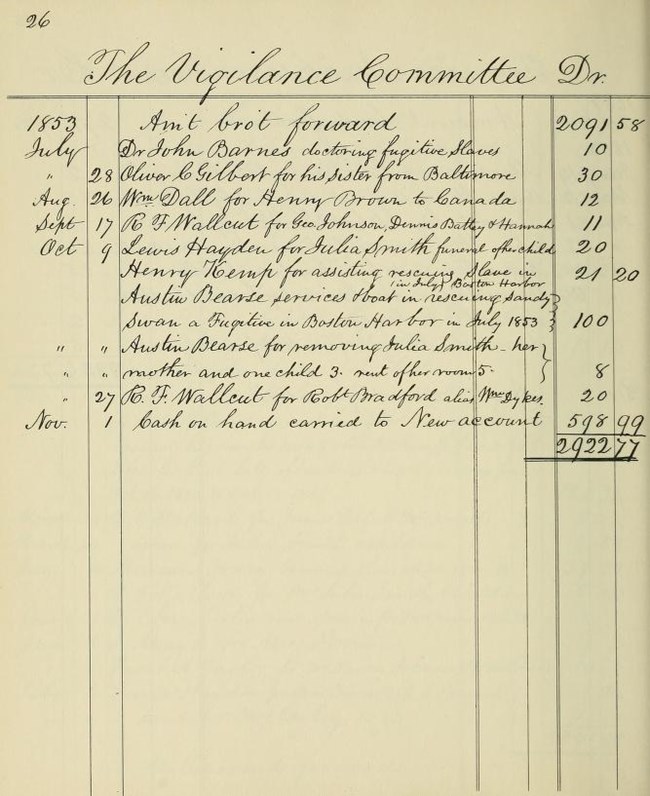 26
The Vigilance Committee Dr.
1853 Am't bro't forward 2091 58
July Dr John Barnes doctoring fugitive Slaves 10
" 28 Oliver C Gilbert for his sister from Baltimore 30
Aug. 26 Wm Dall for Henry Brown to Canada 12
Sept 17 R F Wallcut for Geo. Johnson, Dennis Battey & Hannah 11
Oct 9 Lewis Hayden for Julia Smith funeral of her child 20
Henry Kemp for assisting rescuing Slave in 21 20
in July Boston Harbor
Austin Bearse services & boat in rescuing Sandy
Swan a Fugitive in Boston Harbor in July 1853 100
" " Austin Bearse for removing Julia Smith her
" " mother and one child 3. rent of her room 5. 8
" 27 R. F. Wallcut for Robt Bradford alias Wm Dykes. 20
Nov. 1 Cash on hand carried to New account 598 99
2922 77